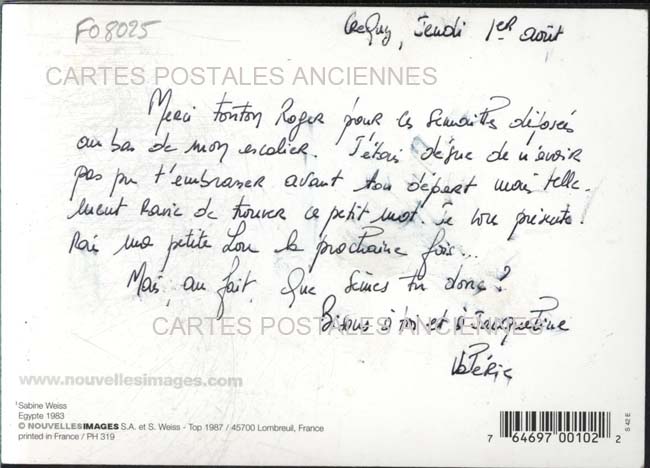 FO8025
Crépy, Jeudi 1er août
CARTES POSTALES ANCIENNES
Merci tonton Roger pour les semailles déposées
au bas de mon escalier. J'étais déçue de n'avoir
pas pu t'embrasser avant ton départ mais telle-
ment ravie de trouver ce petit mot. Je vous présente-
rai ma petite Lou la prochaine fois...
Mais, au fait, que sèmes tu donc ?
Bisous à toi et à Jacqueline
CARTES POSTALES ANCIENNES
Valérie
www.nouvellesimages.com
1 Sabine Weiss
Egypte 1983
© NOUVELLESIMAGES S.A. et S. Weiss - Top 1987 / 45700 Lombreuil, France
printed in France / PH 319
7 64697 00102 2
S 42 E